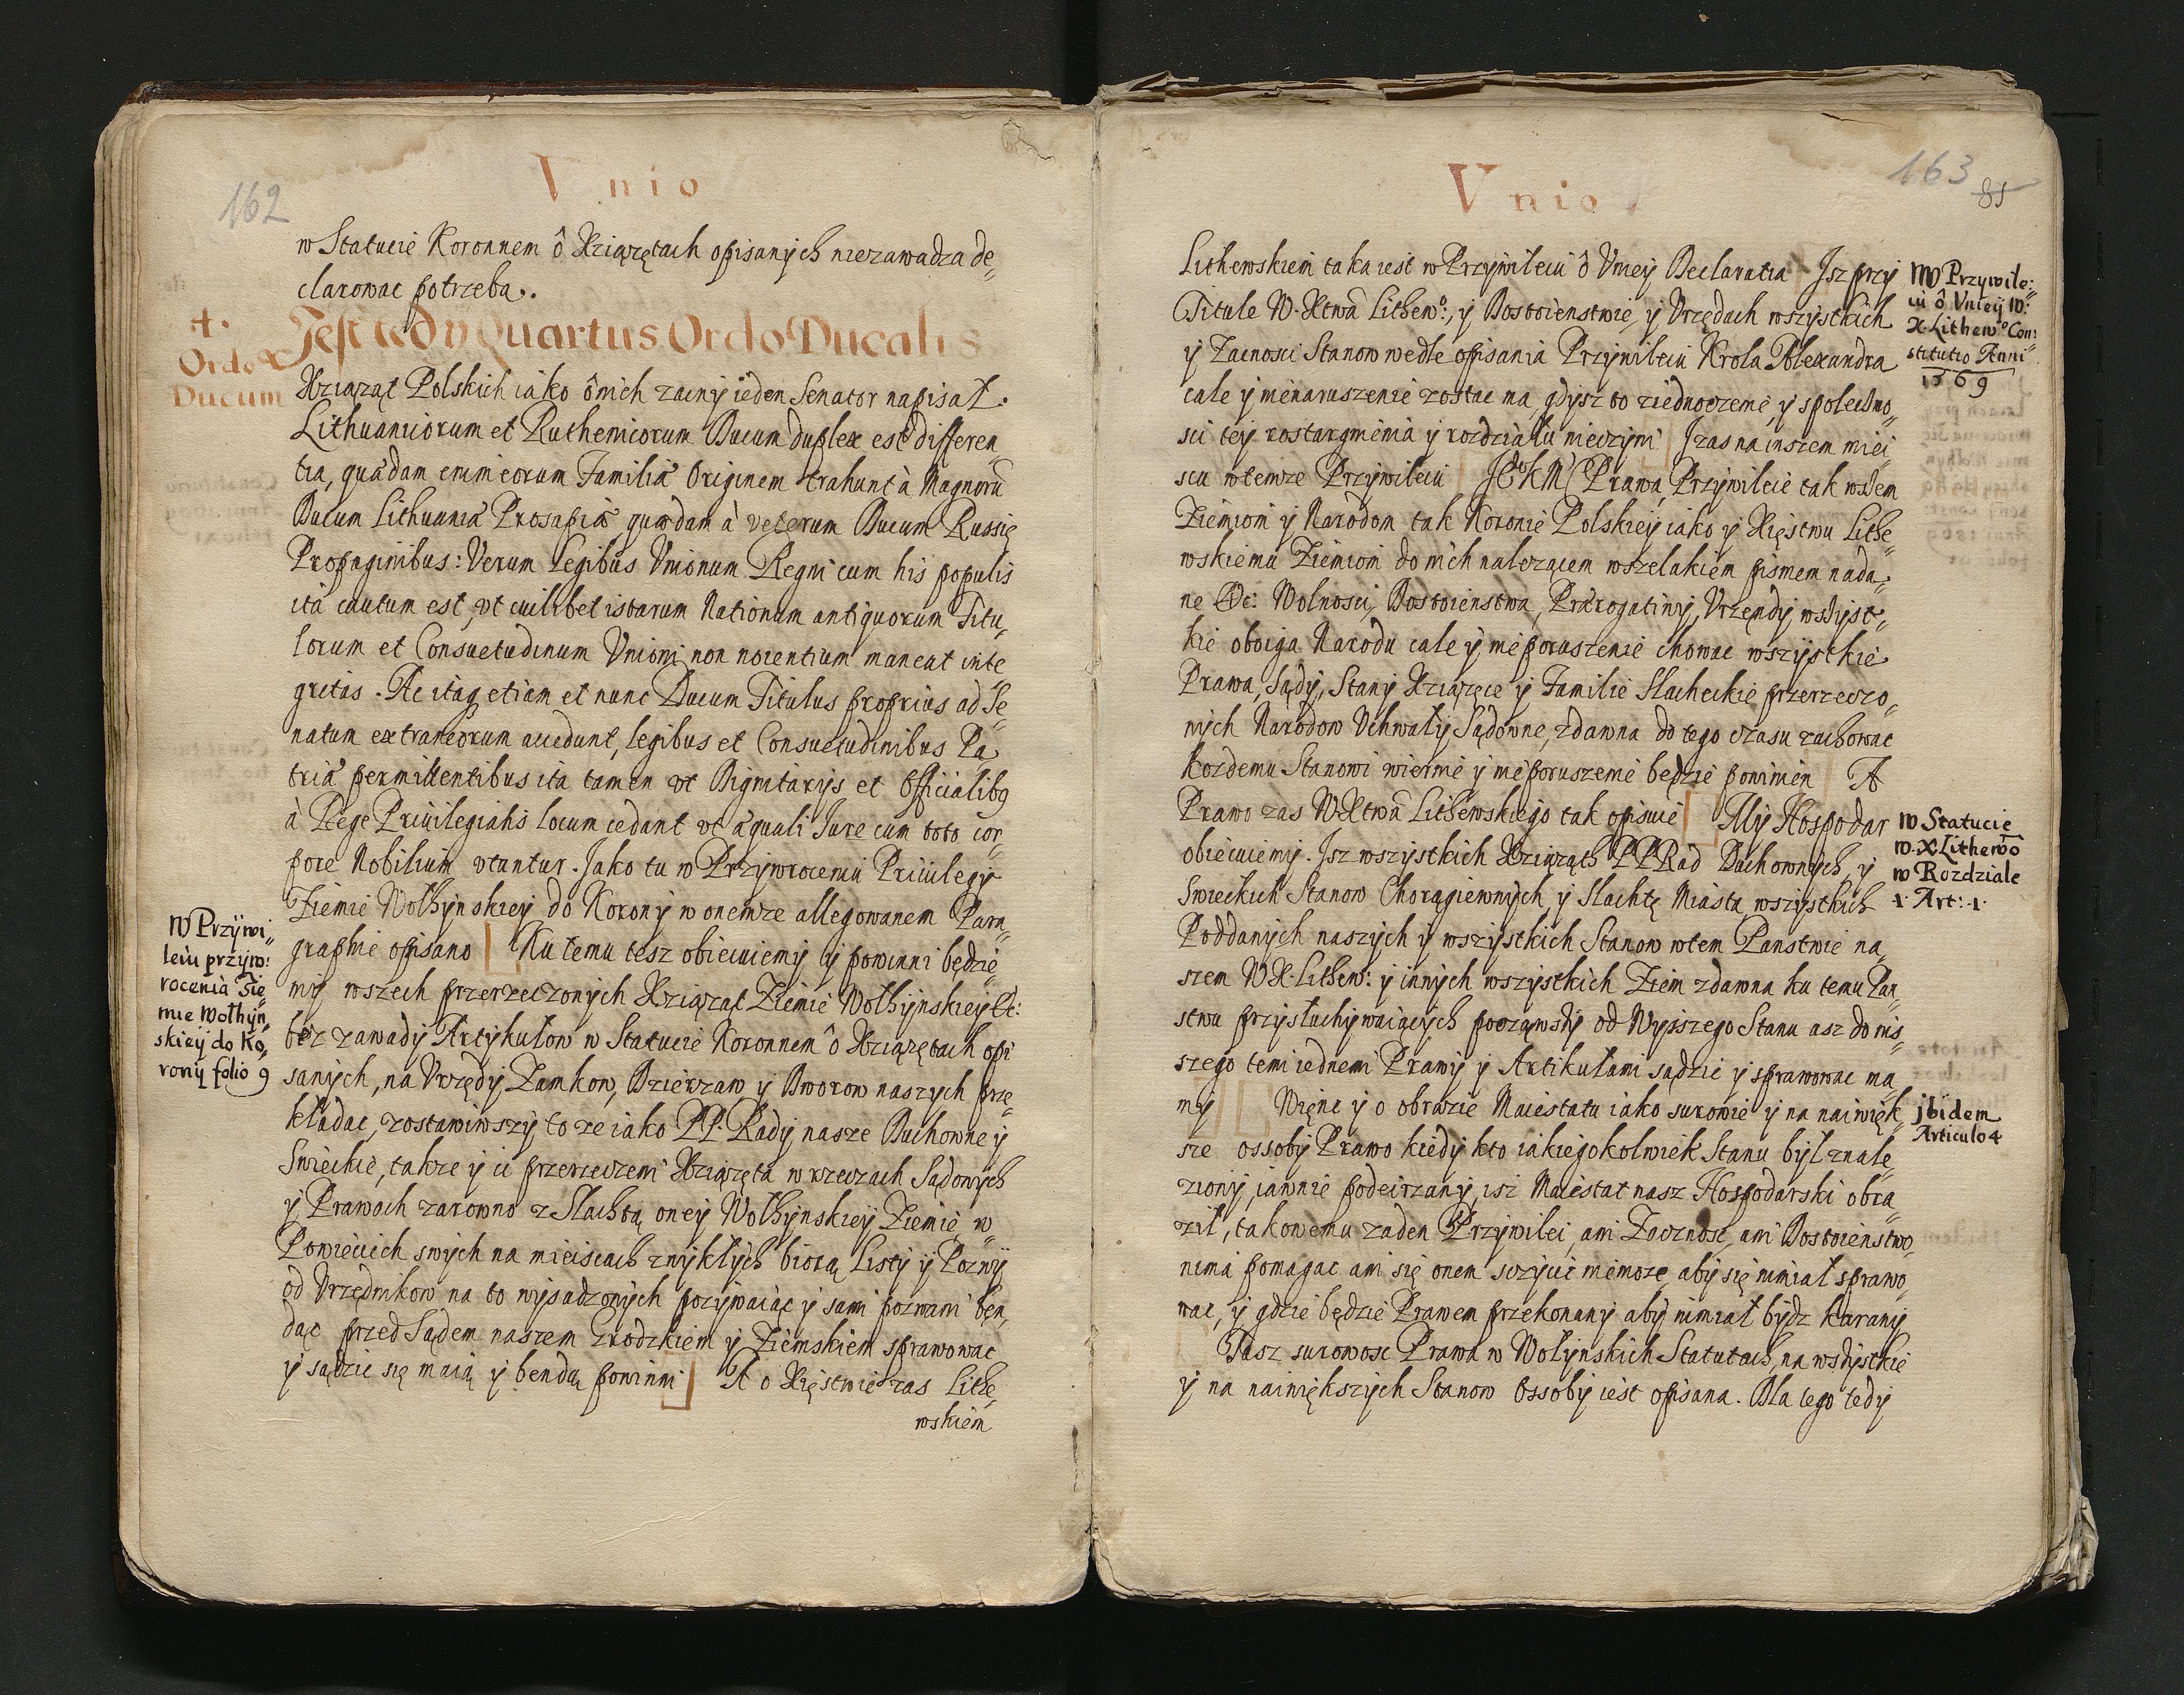 162
Vnio
w Statucie Koronnem ô Xziążętach opisanych niezawadza de„
clarowac potrzeba.
4.
Ordo
Ducum
Jest tedy Quartus Ordo Ducalis
Xziążąt Polskich iáko ônich zacny ieden Senator napisał.
Lithuanicorum et Ruthenicorum Ducum duplex est differen„
tia, quædam enim eorum Familiæ Originem trahunt à Magnorũ
Ducum Lithuaniæ Prosapia quædam à veterum Ducum Russię
Propaginibus: Verum Legibus Vnionum Regni cum his populis
ita cautum est, vt cuilibet istarum Nationum antiquorum Titu„
lorum et Consuetudinum Vnioni non nocentium maneat inte
gritas. Ac itaq etiam et nunc Ducum Titulus proprius ad Se„
natum extraneorum accedunt, legibus et Consuetudinibus Pa„
triæ permittentibus ita tamen vt Dignitarys et Officialibꝯ
à Rege Priuilegiatis locum cedant vt æquali Jure cum toto cor„
pore Nobilium vtantur. Jako tu w Przywroceniu Priuilegy
Ziemie Wolhynskiey do Korony w onemze allegowanem Para„
graphie opisano Ku temu tesz obiecuiemy y powinni będzie„
my wszech przerzeczonych Xziążąt Ziemie Wolhynskiey Et:
bez zawady Artykułow w Statucie Koronnem ô Xziążętach opi
sanych, na Vrzędy, Zamkow, Dzierzaw, y Dworow naszych prze„
kładac, zostawiwszy to ze iako PP. Rady nasze Duchowne y
Swieckie, takze y ci przerzeczeni Xziążęta w rzeczach Sądowych
y Prawach zarowno z Slachtą oney Wolhynskiey Ziemie, w„
Powieciech swych na mieiscach zwykłych biorą Listy y Pozwy
od Vrzędnikow na to wysadzonych pozywaiąc y sami pozwani bęn„
dąc przed Sądem naszem Grodzkiem y Ziemskiem sprawowac
y sądzic się maią y bendą powinni A o Xięstwie zas Lithe„
wskiem
W Przywi„
leiu przyw:
rocenia Zie„
mie Wołhyn„
skiey do Ko„
rony folio 9
163
85
Vnio
Lithewskiem taka iest w Przywileiu ô Vniey Declaratia Jsz przy
Titule W. Xtwa Lithewº:, y Dostoienstwie, y Vrzędach wszystkich
y Zacnosci Stanow wedle opisania Przywileiu Krola Alexandra
cale y nienaruszenie zostac ma, gdysz to ziednoczenie, y społeczno„
sci tey rostargnienia y rozdziału nieczyni Jzas na inszem miei„
scu wtemze Przywileiu Prawa Przywileie tak wszem
Ziemiom y Narodom tak Koronie Polskiey iako y Xięstwu Lithe„
wskiemu Ziemiom do nich nalezącem wszelakiem pismem nada„
ne Etc: Wolnosci, Dostoienstwa, Prærogatiwy, Vrzendy wszyst„
kie oboiga Narodu cale y nieporuszenie chowac wszystkie
Prawa, Sądy, Stany Xziążęce y Familie Slacheckie przerzeczo„
nych Narodow Vchwały Sądowne, zdawna do tego czasu zachowac
kozdemu Stanowi wiernie y nieporuszenie będzie powinien A
Prawo zas W Xtwa Lithewskiego tak opisuie My Hospodar
obiecuiemy. Jsz wszystkich Xziążąth PP Rad Duchownych, y
Swieckich Stanow Chorągiewnych y Slachtę Miasta wszystkich
Poddanych naszych y wszystkich Stanow wtem Panstwie na„
szem W X Lithew: y innych wszystkich Ziem zdawna ku temu Pan„
stwu przysłuchywaiących począwszy od Wyszszego Stanu asz do nis„
szego temi iednemi Prawy y Artikułami sądzic y sprawowac ma
my Więnc y o obrazie Maiestatu iako surowie y na naiwięk„
sze ossoby Prawo kiedy kto iakiegokolwiek Stanu był znale„
ziony, iawnie podeirzany, isz Maiestat nasz Hospodarski obra„
ził, takowemu zaden Przywilei, ani Zacznosc, ani Dostoienstwo„
nima pomagac ani się onem sczycic niemoze, aby się nimiał sprawo„
wac, y gdzie będzie Prawem przekonany aby nimiał bydz karany
Tasz surowosc Prawa w Wolynskich Statutach, na wszystkie
y na naiwiększych Stanow Ossoby iest opisana. Dla tego tedy
W Przywile:
iu ô Vniey W:
X. Lithewº Con:
stitutio Anni
1569
w Statucie
W. X Lithewº
w Rozdziale
1. Art: 1.
jbidem
Articulo 4